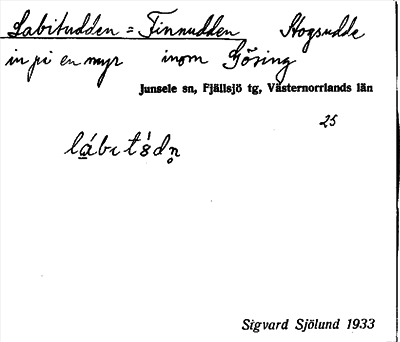 Labitudden = Finnudden Skogsudde
in på en myr inom Göring
Junsele sn, Fjällsjö tg, Västernorrlands län
25
Sigvard Sjölund 1933